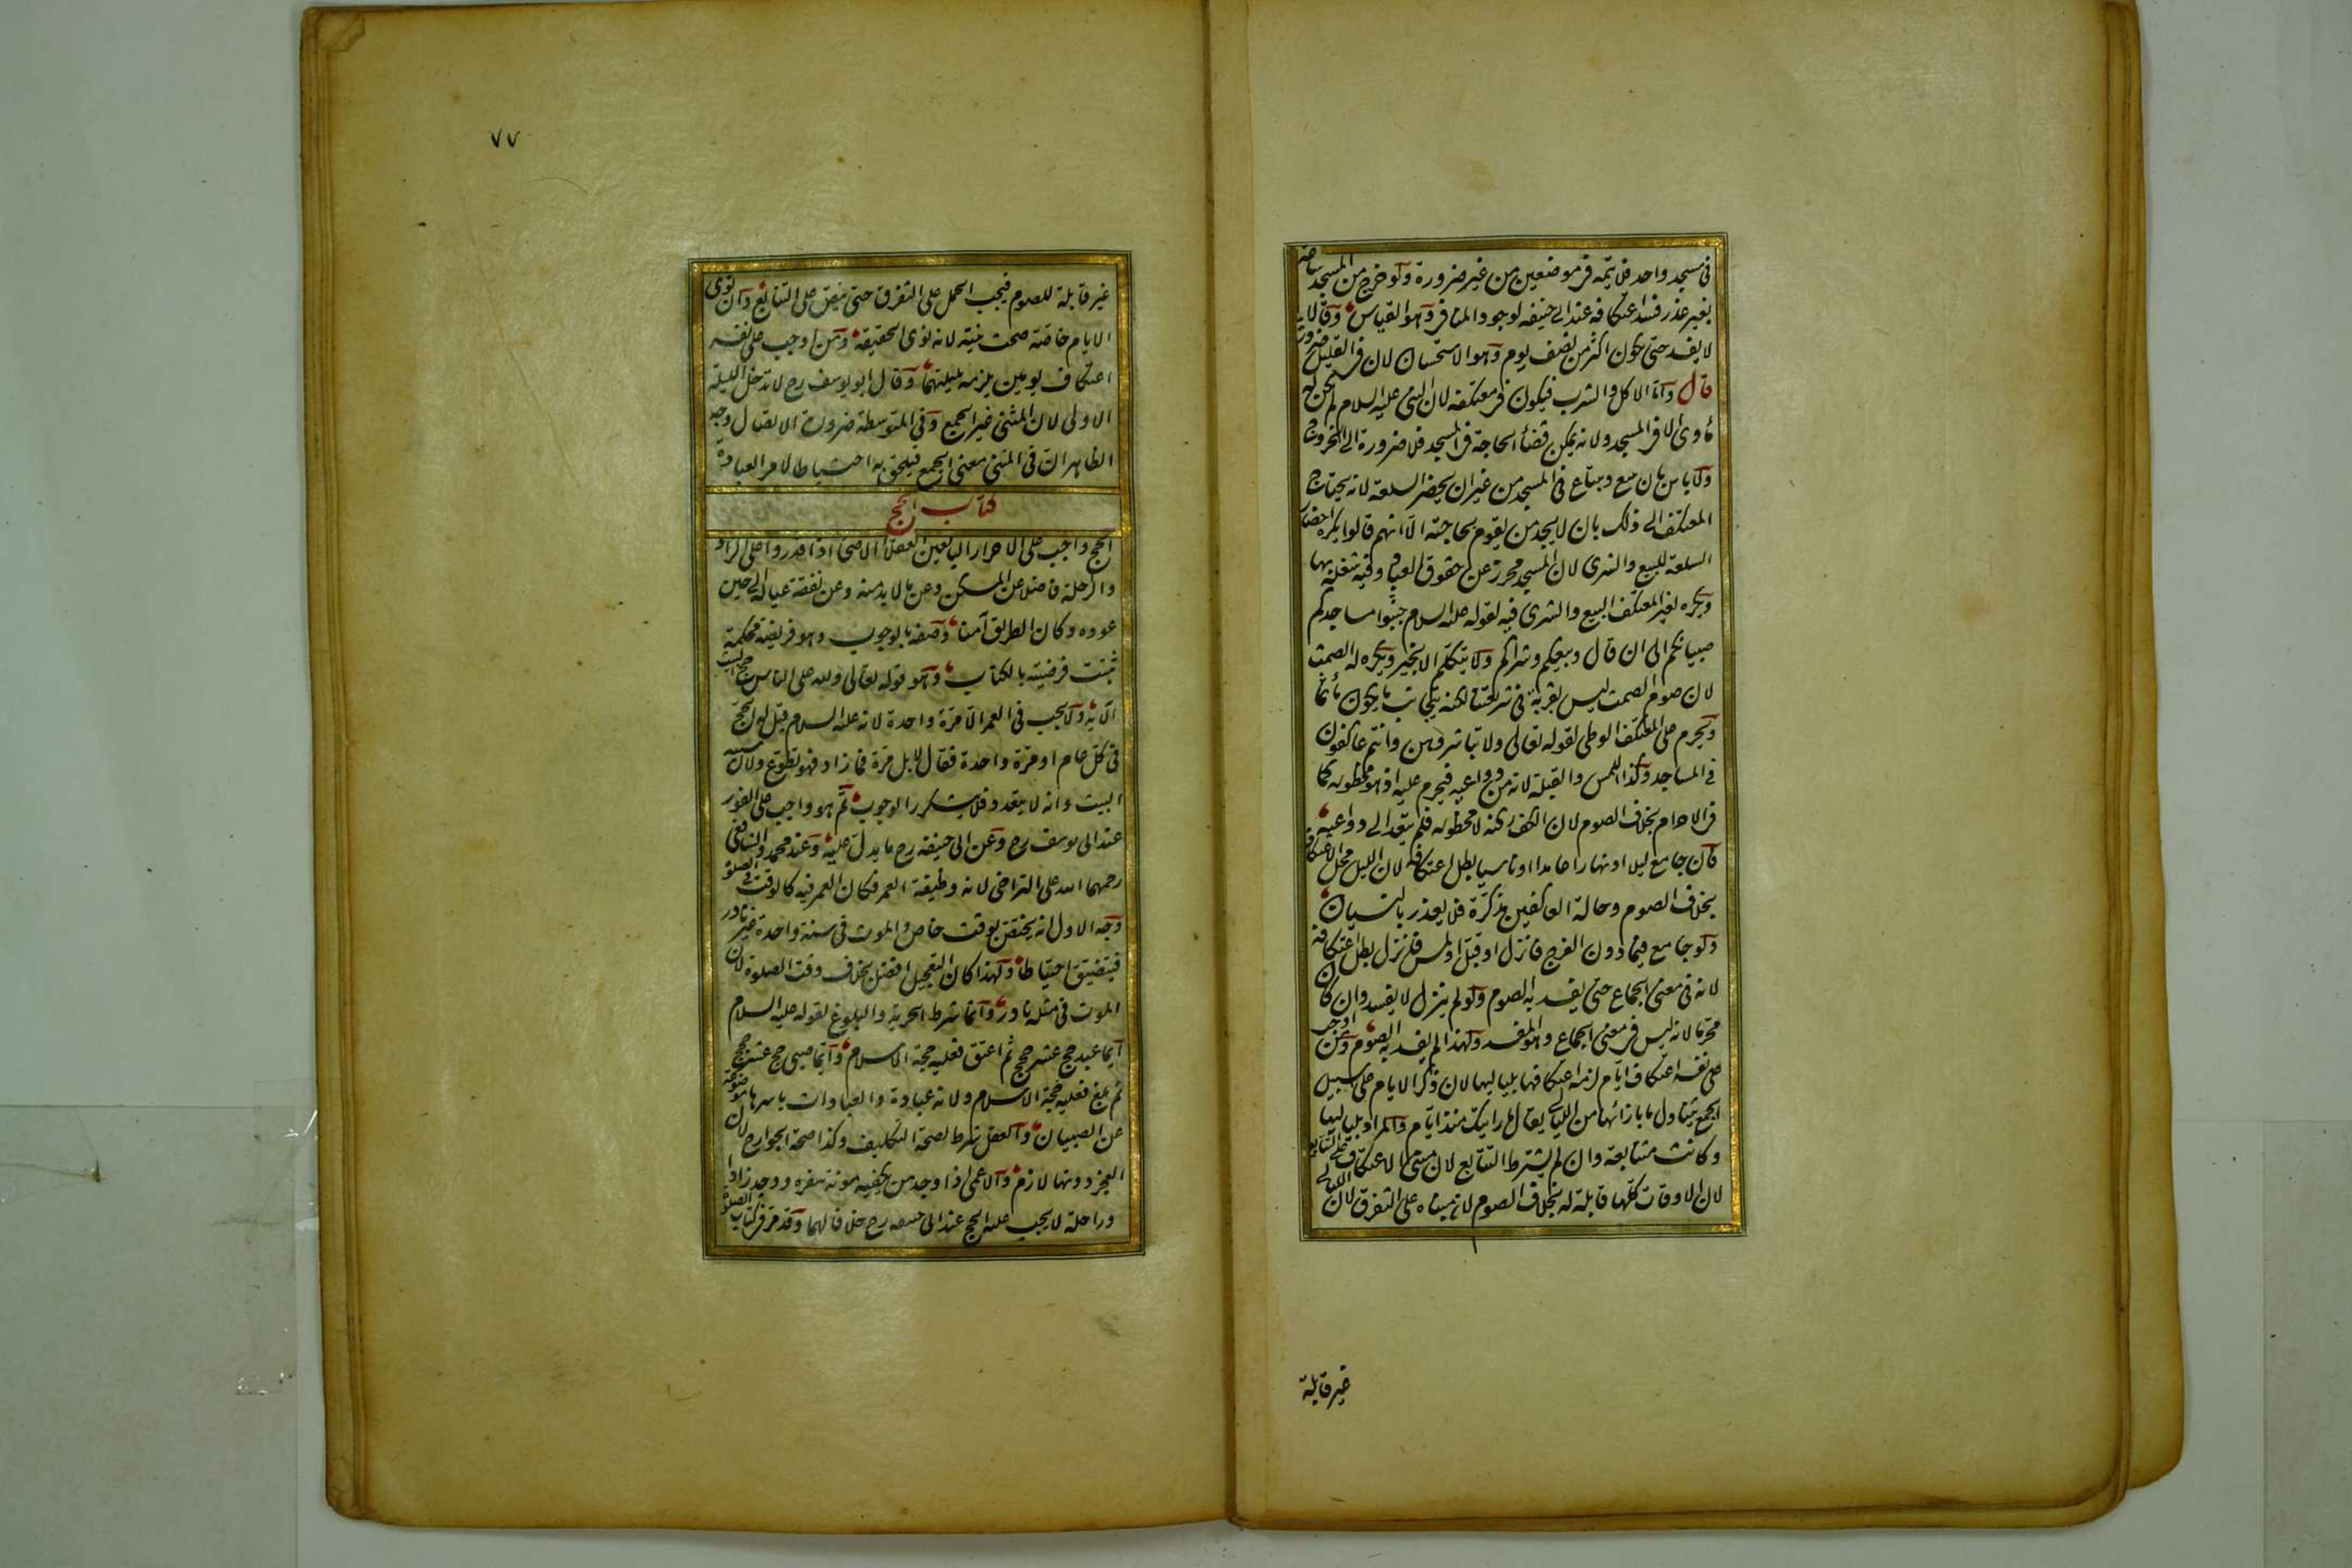 فى مسجد واحد فلا يتمه فى موضعين من غير ضرورة ولو خرج من المسجد ساعة
بغير عذر فسد اعتكافه عند ابى حنيفه لوجود المنافى وهو القياس وقالا
لا يفسد حتى يكون اكثر من نصف يوم وهو الاستحسان لان فى القليل ضرورة
قال واما الاكل والشرب فيكون فى معتكفه لان النبى عليه السلام لم يكن له
مأوى الا فى المسجد ولانه يمكن قضأ الحاجة فى المسجد فلا ضرورة الى الخروج
ولا باس بان يبيع ويبتاع فى المسجد من غير ان يحضر السلعة لانه يحتاج
المعتكف الى ذلك بان لا يجد من يقوم بحاجته الا انهم قالوا يكره احضار
السلعة للبيع والشرى لان المسجد محرز عن حقوق العباد وفيه شغله بها
ويكره لغير المعتكف البيع والشرى فيه لقوله عليه السلام جنبوا مساجدكم
صبيانكم الى ان قال وبيعكم وشراكم ولا يتكلم الا بخير ويكره له الصمت
لان صوم الصمت ليس بقربة فى شريعتنا لكنه يتجانب ما يكون مأثما
ويحرم على المعتكف الوطى لقوله تعالى ولا تباشروهن وانتم عاكفون
فى المساجد وكذا اللمس والقبلة لانه من دواعيه فيحرم عليه اذ هو محظوره كما
فى الاحرام بخلاف الصوم لان الكف ركنه لا محظوره فلم يتعد الى دواعيه
فان جامع ليلا او نهارا عامدا او ناسيا بطل اعتكافه لان الليل محل الاعتكاف
بخلاف الصوم وحالة العاكفين مذكرة فلا يعذر بالنسيان
ولو جامع فيما دون الفرج فانزل او قبل او لمس فانزل بطل اعتكافه
لانه فى معنى الجماع حتى يفسد به الصوم ولو لم ينزل لا يفسد وان كان
محرما لانه ليس فى معنى الجماع وهو المفسد ولهذا لم يفسد به الصوم ومن اوجب
على نفسه اعتكاف ايام لزمه اعتكافها بلياليها لان ذكر الايام على سبيل
الجمع يتناول ما بازائها من الليالى يقال ما رايتك منذ ايام والمراد بلياليها
وكانت متتابعة وان لم يشترط التتابع لان مبنى الاعتكاف على التتابع
لان الاوقات كلها قابلة له بخلاف الصوم لان مبناه على التفرق لان الليالى
غير قابلة
٧٧
غير قابلة للصوم فيجب الحمل على التفرق حتى ينص على التتابع وان نوى
الايام خاصة صحت نيته لانه نوى الحقيقة ومن اوجب على نفسه
اعتكاف يومين يلزمه بليلتهما وقال ابو يوسف رح لا تدخل الليلة
الاولى لان المثنى غير الجمع وفى المتوسطة ضرورة الاتصال وجه
الظاهر ان فى المثنى معنى الجمع فيلحق به احتياطا لامر العبادة
كتاب الحج
الحج واجب على الاحرار البالغين العقلأ الاصحأ اذا قدروا على الزاد
والراحلة فاضلا عن المسكن وعن ما لا بد منه وعن نفقة عياله الى حين
عوده وكان الطريق آمنا وصفه بالوجوب وهو فريضة محكمة
ثبتت فرضيته بالكتاب وهو قوله تعالى ولله على الناس حج البيت
الآية ولا يجب فى العمر الا مرة واحدة لانه عليه السلام قيل له الحج
فى كل عام او مرة واحدة فقال لا بل مرة فما زاد فهو تطوع ولان سببه
البيت وانه لا يتعدد فلا يتكرر الوجوب ثم هو واجب على الفور
عند ابى يوسف رح وعن ابى حنيفه رح ما يدل عليه وعند محمد والشافعى
رحمهما الله على التراخى لانه وظيفة العمر فكان العمر فيه كالوقت فى الصلوة
وجه الاول انه يختص بوقت خاص والموت فى سنة واحدة غير نادر
فيتضيق احتياطا ولهذا كان التعجيل افضل بخلاف وقت الصلوة لان
الموت فى مثله نادر وانما شرط الحرية والبلوغ لقوله عليه السلام
ايما عبد حج عشر حجج ثم اعتق فعليه حجة الاسلام وايما صبى حج عشر حجج
ثم بلغ فعليه حجة الاسلام ولانه عبادة والعبادات باسرها موضوعة
عن الصبيان والعقل شرط لصحة التكليف وكذا صحة الجوارح لان
العجز دونها لازم والاعمى اذا وجد من يكفيه مونة سفره ووجد زادا
وراحلة لا يجب عليه الحج عند ابى حنيفه رح خلافا لهما وقد مر فى كتاب الصلوة